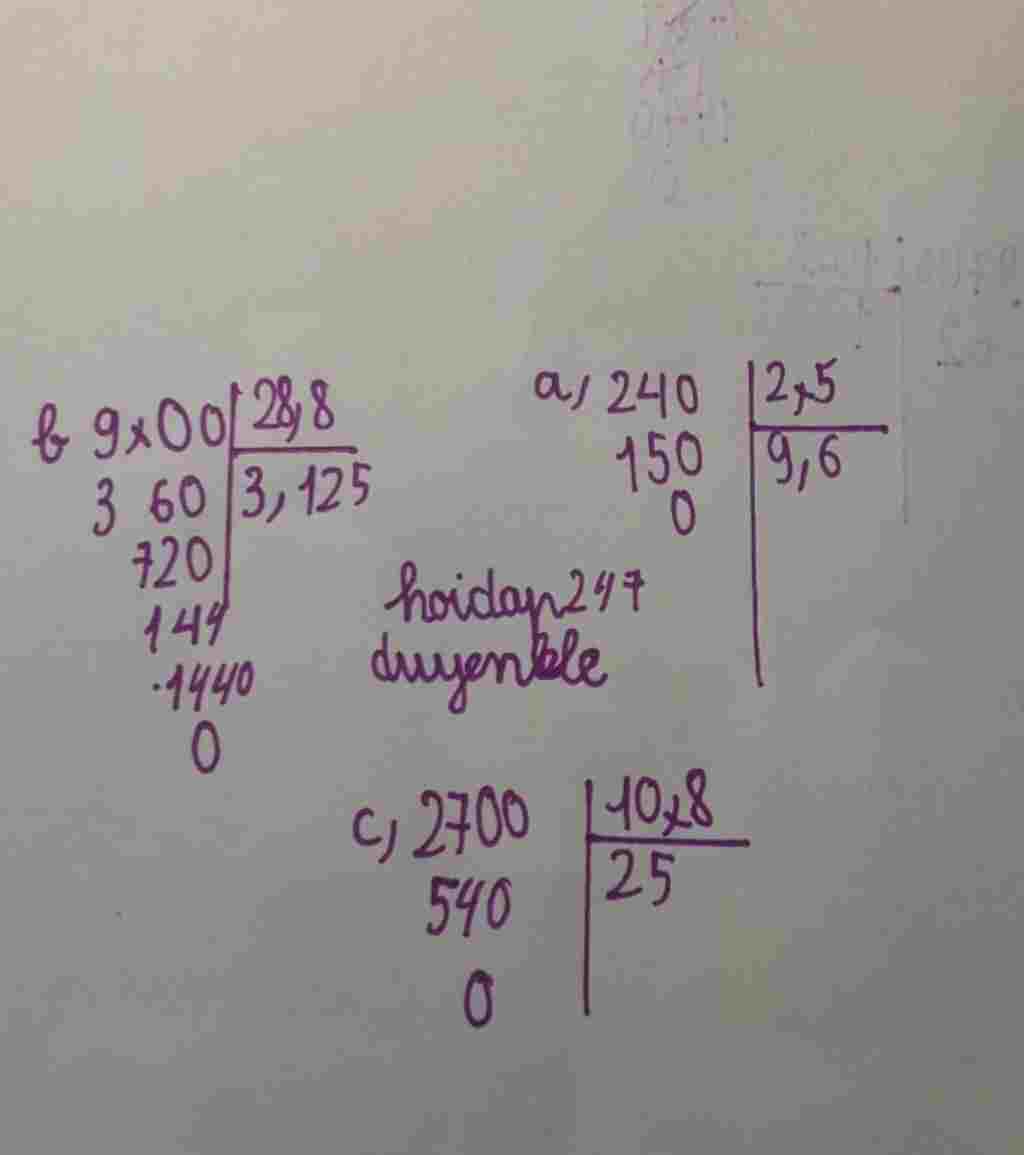 a, 240 2,5
150 9,6
0
b 9,00 28,8
3 60 3,125
720
144
.1440
0
hoidap247
duyenble
c, 2700 10,8
540 25
0